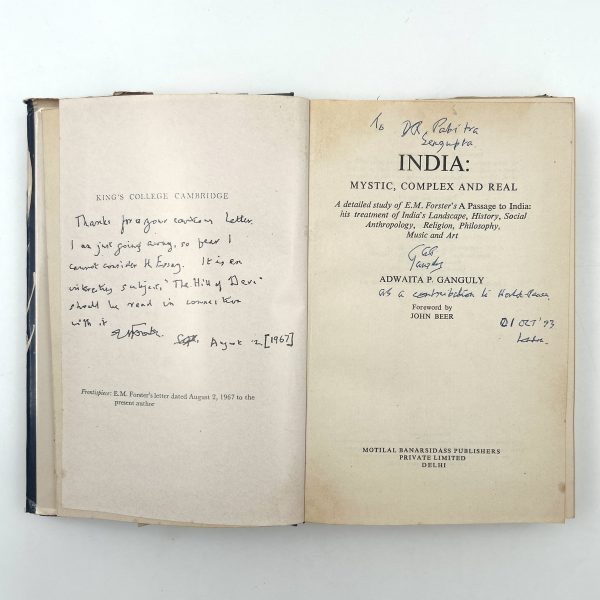 KING'S COLLEGE CAMBRIDGE
Thanks for your letter.
I am just going away, so fear I
cannot consider the Essay. It is an
interesting subject. "The Hill of Devi"
should be read in connection
with it
EMForster
August 2 [1967]
Frontispiece: E.M. Forster's letter dated August 2, 1967 to the
present author
To DR. Pabitra
Sengupta
INDIA:
MYSTIC, COMPLEX AND REAL
A detailed study of E.M. Forster's A Passage to India:
his treatment of India's Landscape, History, Social
Anthropology, Religion, Philosophy,
Music and Art
Ganguly
ADWAITA P. GANGULY
as a contribution to
Foreword by
JOHN BEER
01 OCT '93
MOTILAL BANARSIDASS PUBLISHERS
PRIVATE LIMITED
DELHI